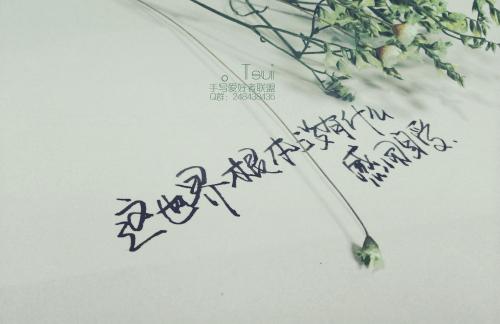 Tsui
手写爱好者联盟
Q群：248438435
这世界根本没有什么
感同身受.